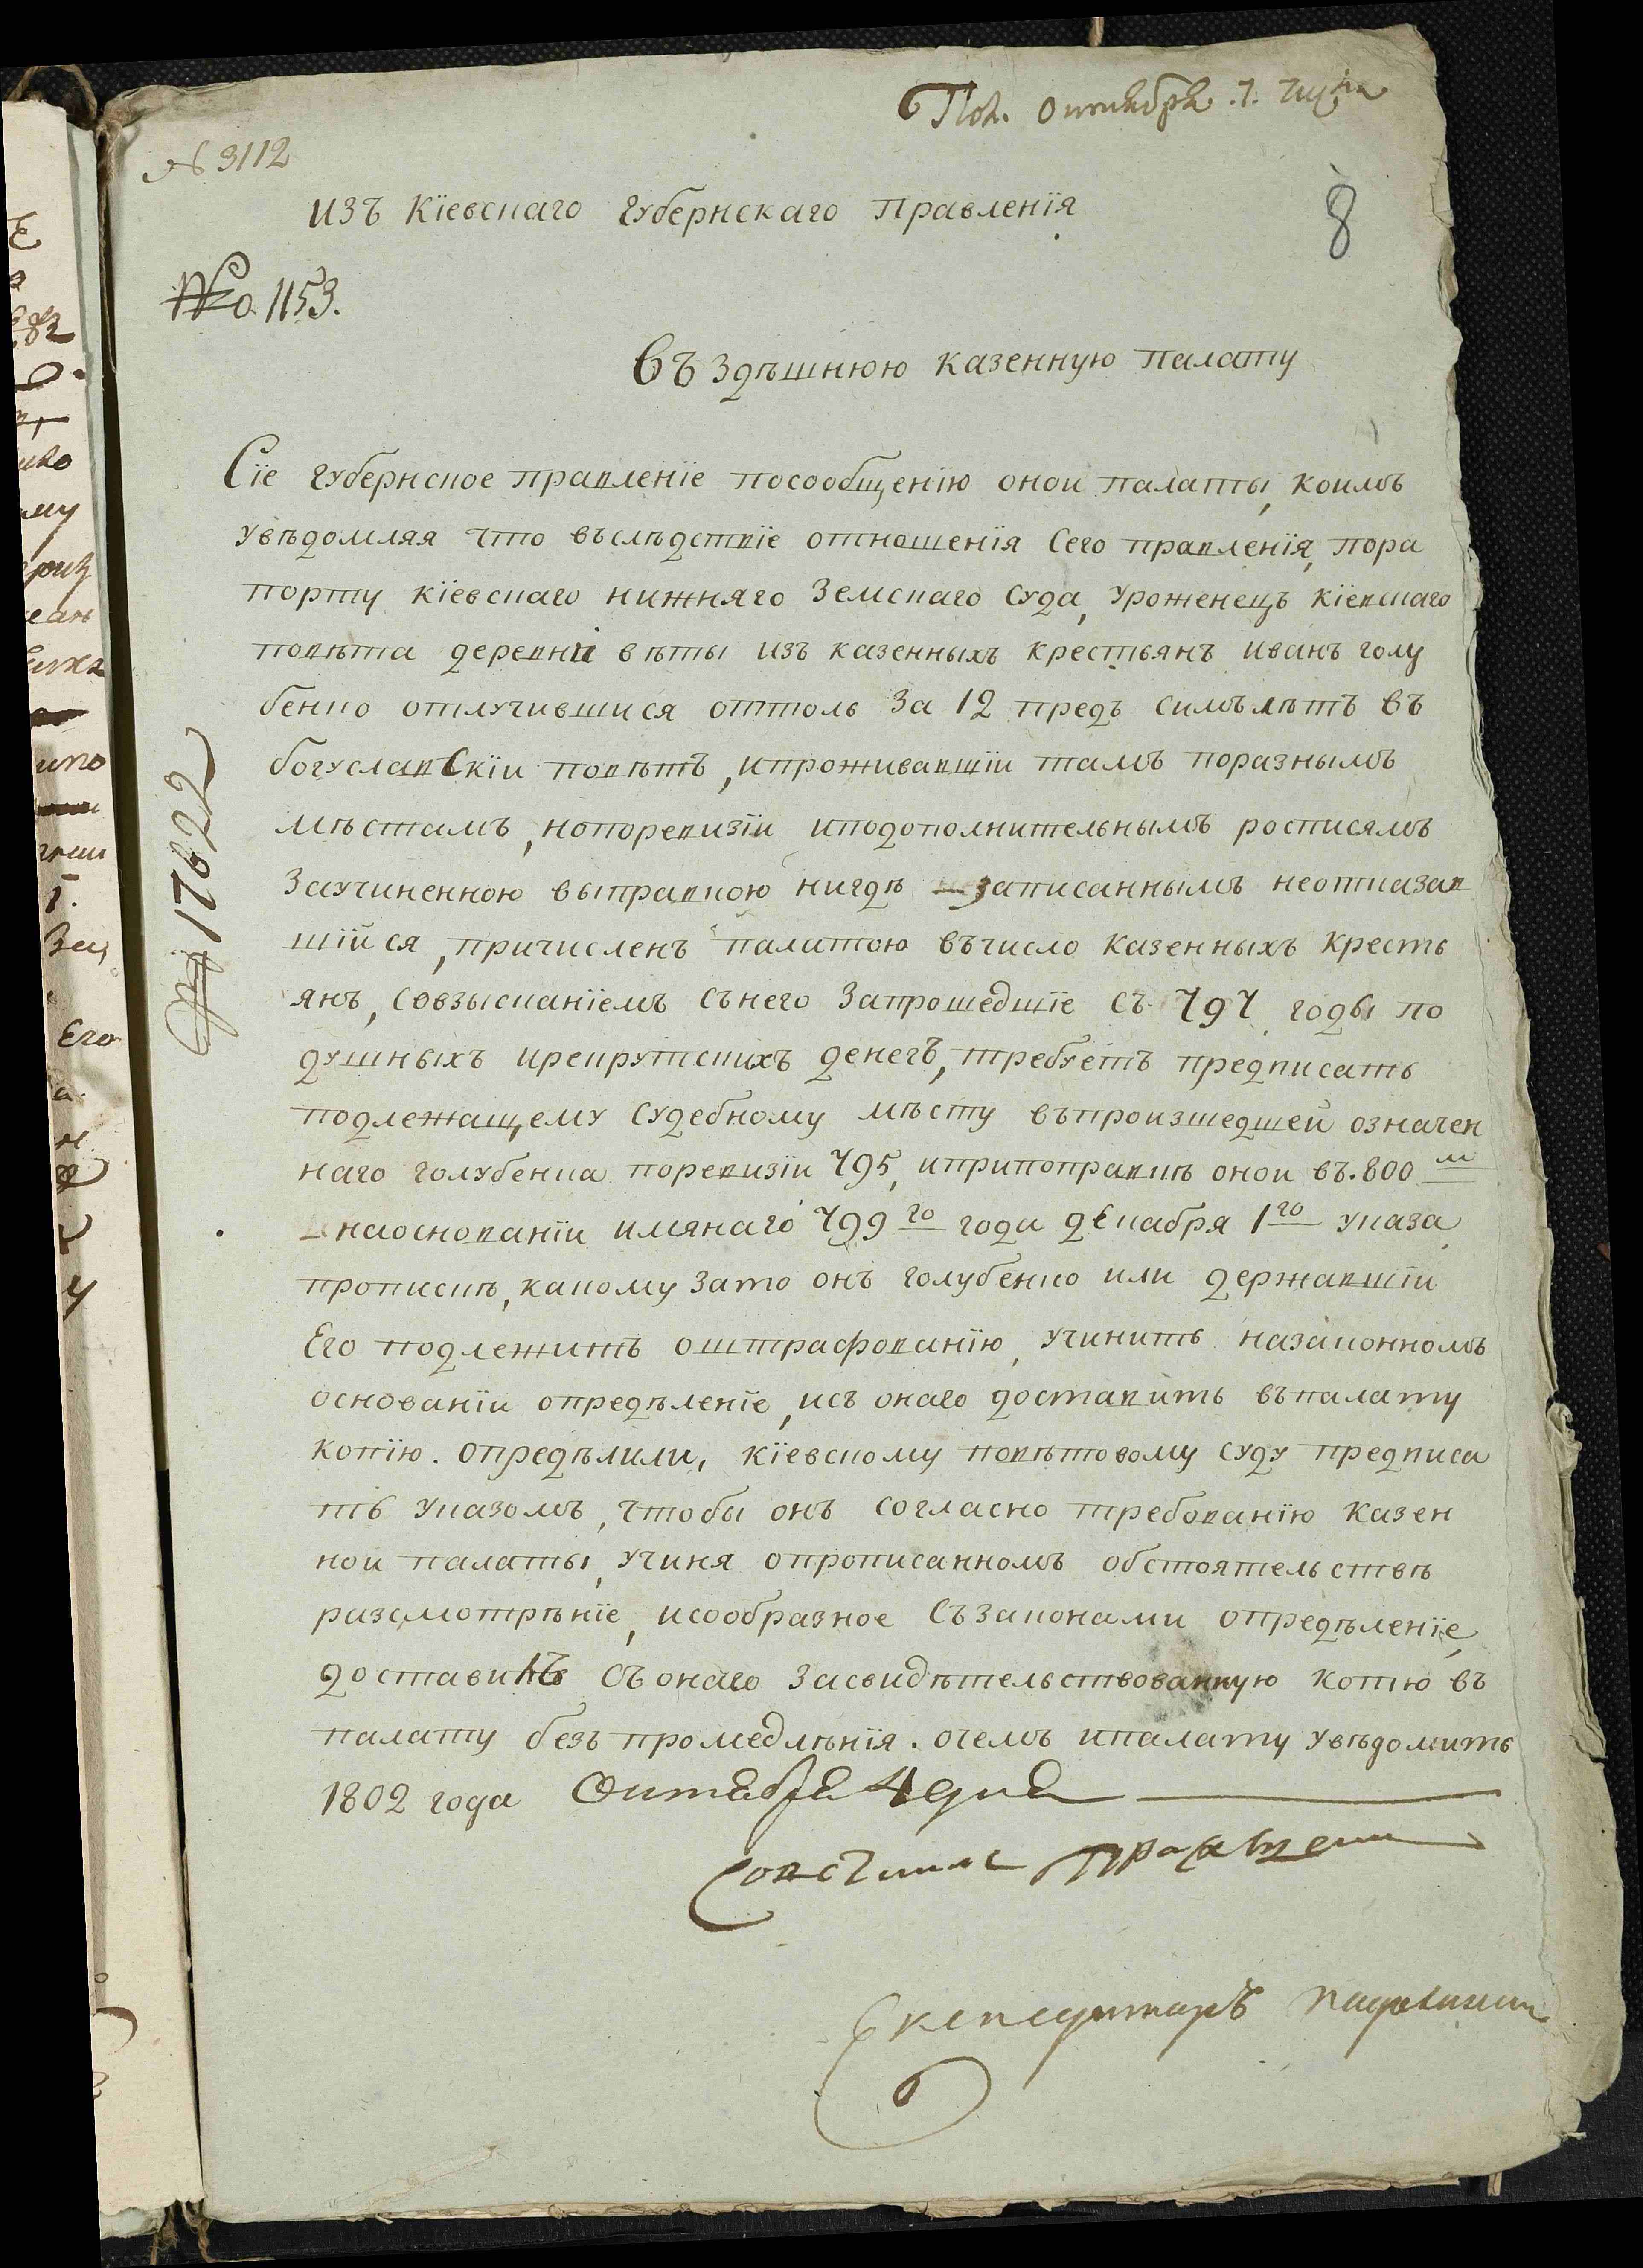 Пол. октября .7. числа
№ 3112
8
изъ кїевскаго губернскаго правленїя
№о. 1153.
въ здѣшнюю казенную палату
Сїе губернское правленїе посообщенїю онои палаты, коимъ
увѣдомляя что въслѣдствїе отношенїя сего правленїя, пора
порту кїевскаго нижняго земскаго суда, уроженецъ кїевскаго
повѣта деревни вѣты изъ казенныхъ крестьянъ иванъ голу
бенко отлучившися оттоль за 12 предъ симъ лѣтъ въ
богуславскїи повѣтъ, ипроживавшїи тамъ поразнымъ
мѣстамъ, нопоревизїи иподополнительнымъ росписямъ
заучиненною выправкою нигдѣ записаннымъ неотказав
шїйся, причисленъ палатою въчисло казенныхъ кресть
янъ, совзысканїемъ снего запрошедшїе съ 797 годы по
душныхъ ирекрутскихъ денегъ, требуетъ предписать
подлежащему судебному мѣсту въпроизшедшей означен
наго голубенка поревизїи 795, иприпоправкѣ онои въ. 800 м
наоснованїи имянаго 799 го года декабря 1 го указа
пропискѣ, какому зато онъ голубенко или державшїи
его подлежитъ оштрафованїю, учинить назаконномъ
основанїи опредѣленїе, исъ онаго доставить въпалату
копїю. опредѣлили, кїевскому повѣтовому суду предписа
ть указомъ, чтобы онъ согласно требованїю казен
нои палаты, учиня опрописанномъ обстоятельствѣ
разсмотрѣнїе, исообразное съзаконами опредѣленїе,
доставилъ съ онаго засвидѣтельствованную копїю въ
палату безъ промедлѣнїя. очемъ ипалату увѣдомить
1802 года октября 4 дня
Совѣтникъ
Експедиторъ
17622